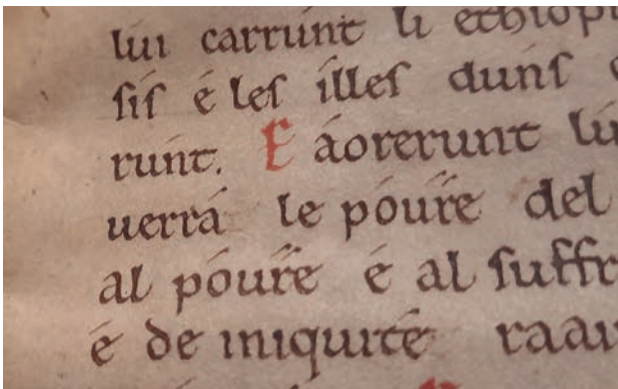 lui carrunt li ethiopi
sis é les illes duns
runt. E áorerunt lú
uerrá le póure del
al póure é al suffr
é de iniquité raai